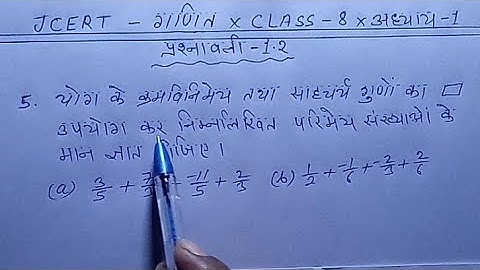 JCERT - गणित × CLASS - 8 × अध्याय - 1
प्रश्नावली - 1.2
5. योग के क्रमविनिमेय तथा साहचर्य गुणों का
उपयोग कर निम्नलिखित परिमेय संख्याओं के
मान ज्ञात
(a) 3/5 + + -11/5 + 2/3 (b) 1/2 + -1/6 + -2/3 + 2/6